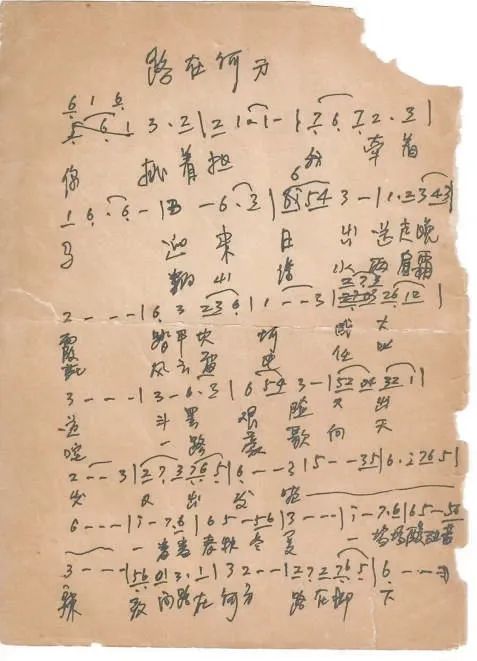 路在何方
6 1 6
5 6 1 3·2|2 1·1-|7 6 7 2·3|
你 挑着担 我 牵着
6
1 6·6-|3 -6·3|6i54 3-|1·2343|
马 迎来日出送走晚
翻山涉水两肩霜
2---|6 3 236|1--3|2703 2612|
霞 踏平坎坷 成大
风云雷电 任叱
3---|3-6·3|6 54 3-|5204 321|
道 斗罢艰险 又出
咤 一路豪歌向天
2--3|27 3765|6---3|5--35|6·i2765|
发 又出发 啦
6---|i-76|65-56|3---|i-76|65-56
一番番春秋冬夏 一场场酸甜苦
3---|56 01 3·1|32--|272765|6---
辣 敢问路在何方 路在脚下